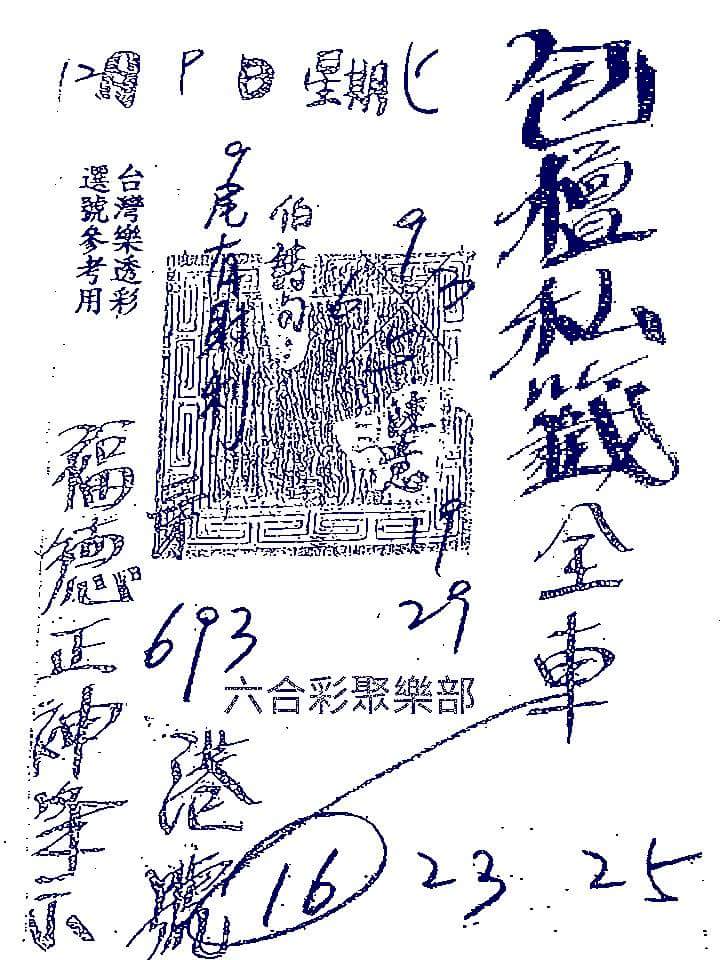 12月 9 日 星期七
包壇私籤全車
台灣樂透彩
選號參考用
9尾有財利
伯詩句:
9
19
29
693
六合彩聚樂部
福德正神降示
港號
16 23 25